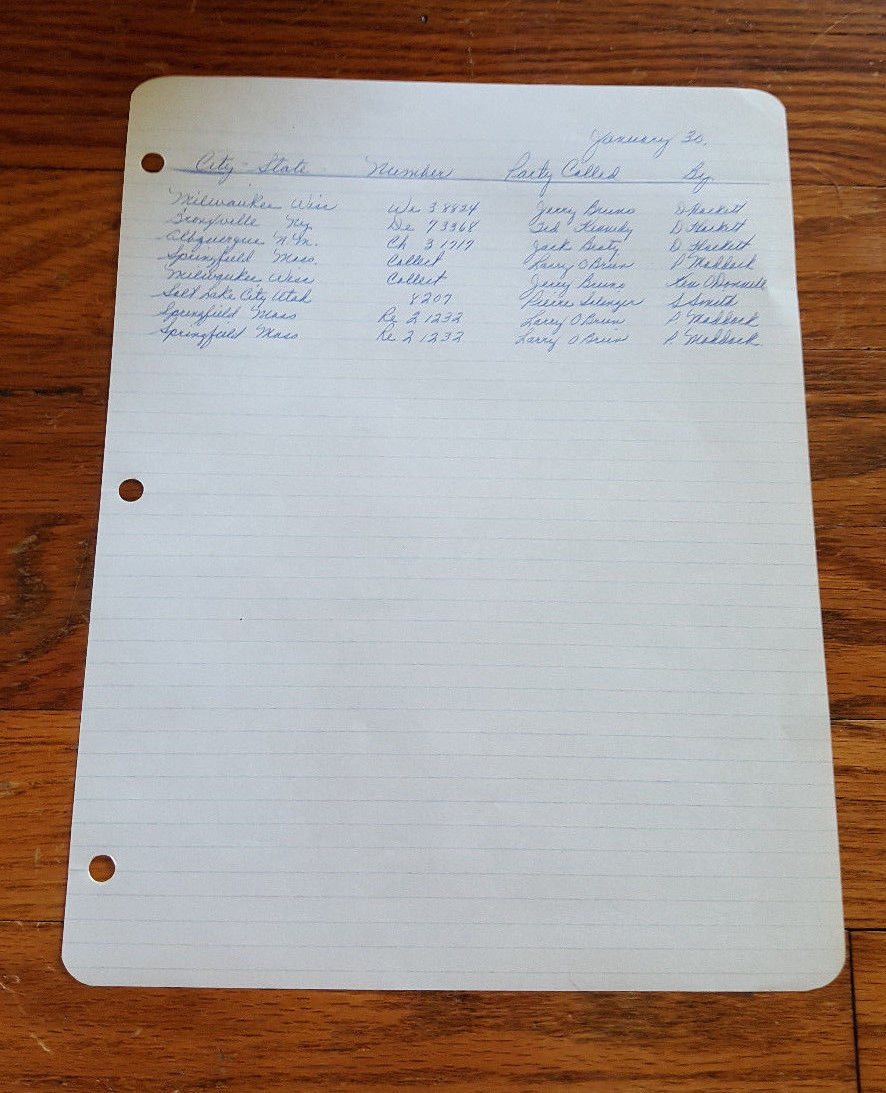 January 30.
City - State Number Party Called By
Milwaukee Wisc We 3 8824 Jerry Bruno D Hackett
Bronxville Ny De 7 3368 Ted Kennedy D Hackett
Albuquerque N.M. Ch 3 1717 Jack Beaty D Hackett
Springfield Mass. Collect Larry O Brien P Maddock
Milwaukee Wisc Collect Jerry Bruno Ken O Donnell
Salt Lake City Utah 8207 Pierre Salinger S Smith
Springfield Mass Re 2 1232 Larry O Brien P Maddock
Springfield Mass Re 2 1232 Larry O Brien P Maddock